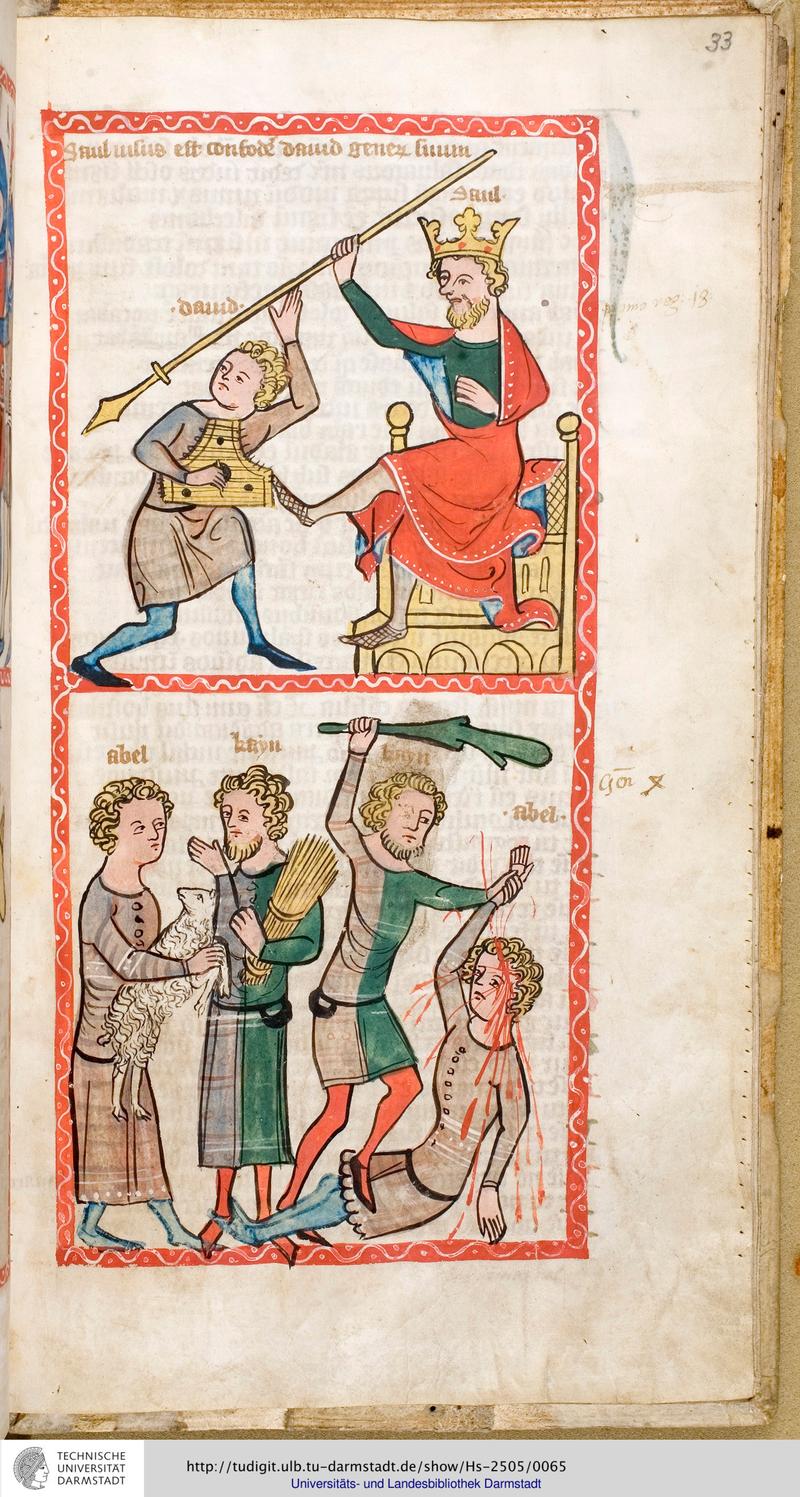 33
Saul nisus est confodẽ dauid generũ suum
Saul
·dauid·
abel
kayn
kayn
abel·
TECHNISCHE
UNIVERSITÄT
DARMSTADT
http://tudigit.ulb.tu-darmstadt.de/show/Hs-2505/0065
Universitäts- und Landesbibliothek Darmstadt